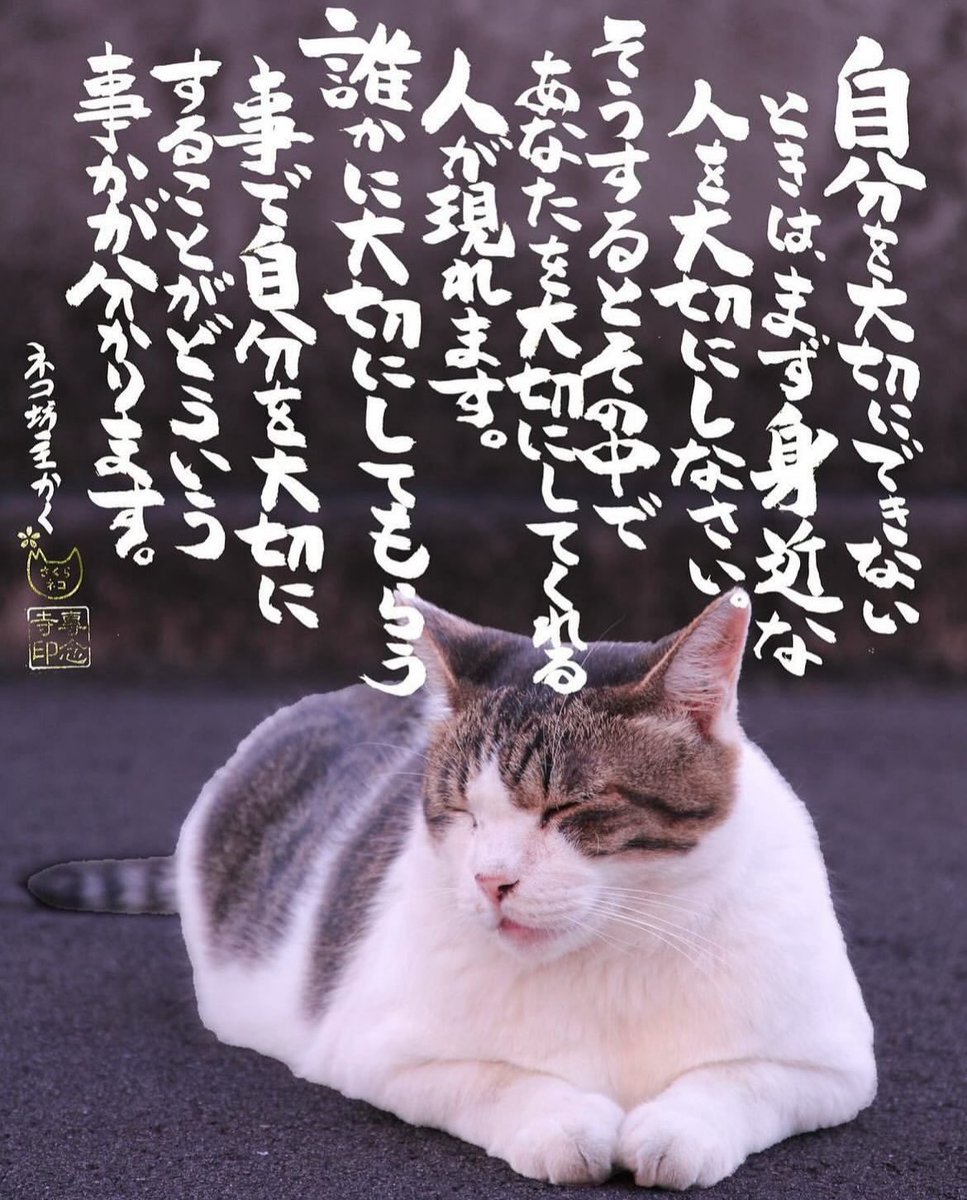 自分を大切にできない
ときは、まず身近な
人を大切にしなさい。
そうするとその中で
あなたを大切にしてくれる
人が現れます。
誰かに大切にしてもらう
事で自分を大切に
することがどういう
事かが分かります。
ネコ坊主かく
さくら
ネコ
専念
寺印